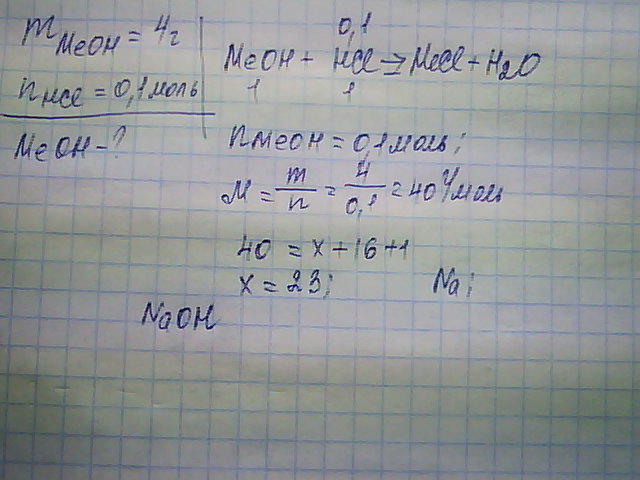 m MeOH = 4г
n HCl = 0,1моль
MeOH - ?
0,1
MeOH + HCl => MeCl + H2O
1 1
n MeOH = 0,1моль;
M = m/n = 4/0,1 = 40 г/моль
40 = x + 16 + 1
x = 23; Na;
NaOH